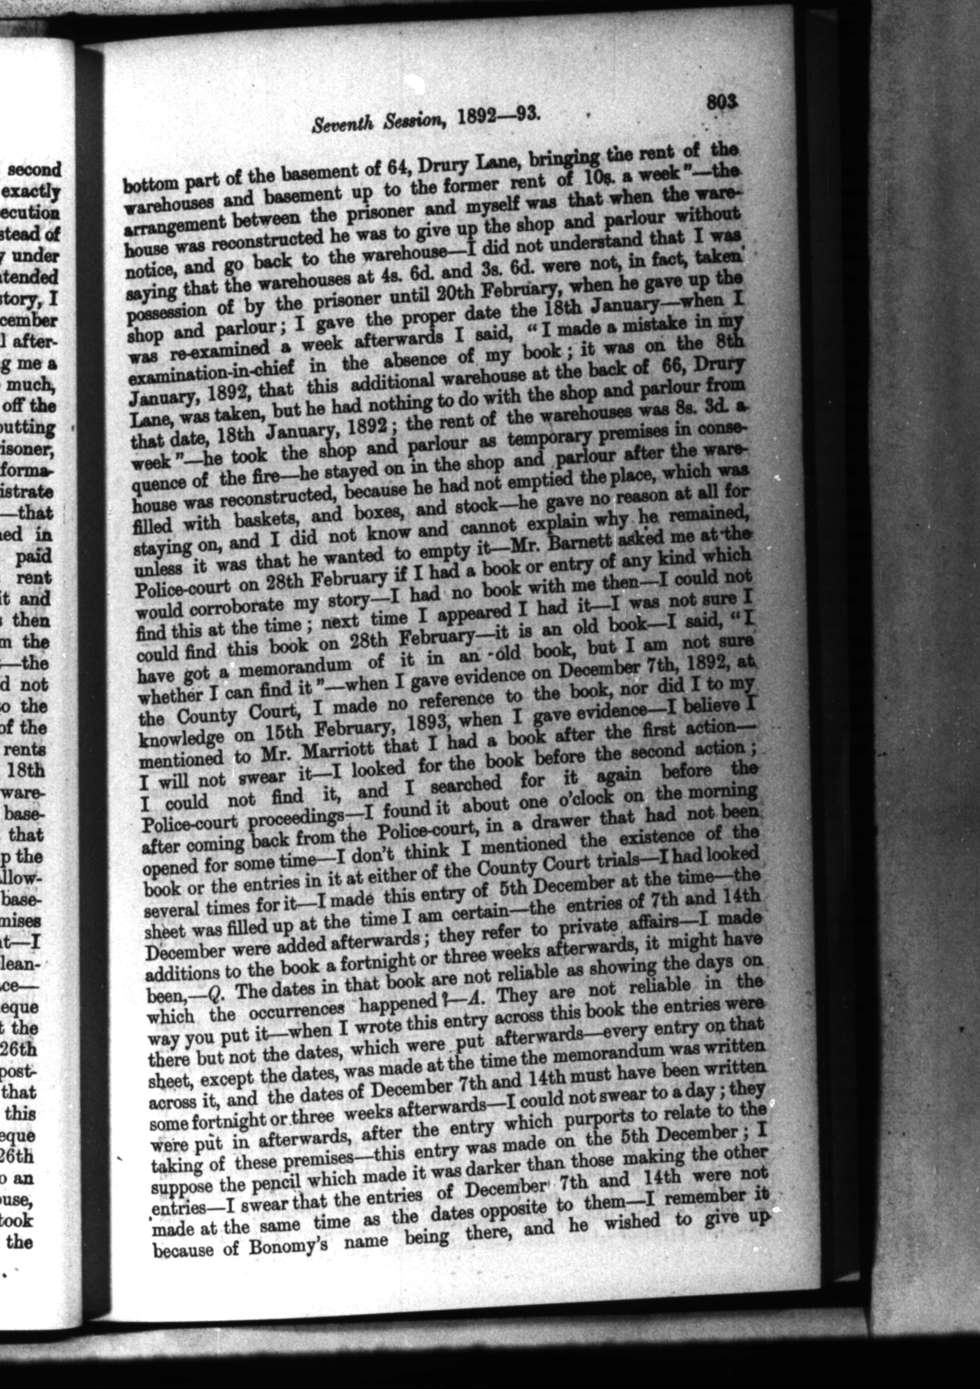 second
exactly
ecution
stead of
under
tended
story, I
cember
l after-
g me a
much,
off the
outting
isoner,
forma-
istrate
—that
ned in
paid
rent
it and
then
m the
—the
d not
o the
of the
rents
18th
ware-
base-
that
p the
llow-
base-
mises
t—I
lean-
ce—
eque
t the
26th
post-
that
this
eque
26th
o an
ouse,
took
the
Seventh Session, 1892—93. 803
bottom part of the basement of 64, Drury Lane, bringing the rent of the
warehouses and basement up to the former rent of 10s. a week"—the
arrangement between the prisoner and myself was that when the ware-
house was reconstructed he was to give up the shop and parlour without
notice, and go back to the warehouse—I did not understand that I was
saying that the warehouses at 4s. 6d. and 3s. 6d. were not, in fact, taken
possession of by the prisoner until 20th February, when he gave up the
shop and parlour; I gave the proper date the 18th January—when I
was re-examined a week afterwards I said, "I made a mistake in my
examination-in-chief in the absence of my book; it was on the 8th
January, 1892, that this additional warehouse at the back of 66, Drury
Lane, was taken, but he had nothing to do with the shop and parlour from
that date, 18th January, 1892; the rent of the warehouses was 8s. 3d. a
week"—he took the shop and parlour as temporary premises in conse-
quence of the fire—he stayed on in the shop and parlour after the ware-
house was reconstructed, because he had not emptied the place, which was
filled with baskets, and boxes, and stock—he gave no reason at all for
staying on, and I did not know and cannot explain why he remained,
unless it was that he wanted to empty it—Mr. Barnett asked me at the
Police-court on 28th February if I had a book or entry of any kind which
would corroborate my story—I had no book with me then—I could not
find this at the time; next time I appeared I had it—I was not sure I
could find this book on 28th February—it is an old book—I said, "I
have got a memorandum of it in an old book, but I am not sure
whether I can find it"—when I gave evidence on December 7th, 1892, at
the County Court, I made no reference to the book, nor did I to my
knowledge on 15th February, 1893, when I gave evidence—I believe I
mentioned to Mr. Marriott that I had a book after the first action—
I will not swear it—I looked for the book before the second action;
I could not find it, and I searched for it again before the
Police-court proceedings—I found it about one o'clock on the morning
after coming back from the Police-court, in a drawer that had not been
opened for some time—I don't think I mentioned the existence of the
book or the entries in it at either of the County Court trials—I had looked
several times for it—I made this entry of 5th December at the time—the
sheet was filled up at the time I am certain—the entries of 7th and 14th
December were added afterwards; they refer to private affairs—I made
additions to the book a fortnight or three weeks afterwards, it might have
been,—Q. The dates in that book are not reliable as showing the days on
which the occurrences happened?—A. They are not reliable in the
way you put it—when I wrote this entry across this book the entries were
there but not the dates, which were put afterwards—every entry on that
sheet, except the dates, was made at the time the memorandum was written
across it, and the dates of December 7th and 14th must have been written
some fortnight or three weeks afterwards—I could not swear to a day; they
were put in afterwards, after the entry which purports to relate to the
taking of these premises—this entry was made on the 5th December; I
suppose the pencil which made it was darker than those making the other
entries—I swear that the entries of December 7th and 14th were not
made at the same time as the dates opposite to them—I remember it
because of Bonomy's name being there, and he wished to give up